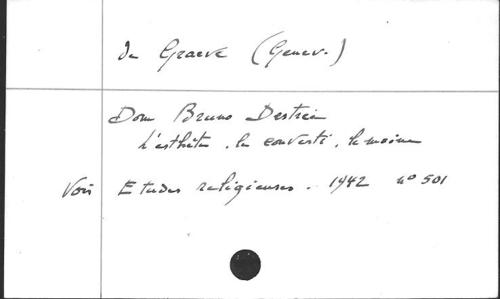 De Graeve (Genev.)
Dom Bruno Destrée
L'esthète, le converti, le moine
Voir Etudes religieuses. 1942 n° 501